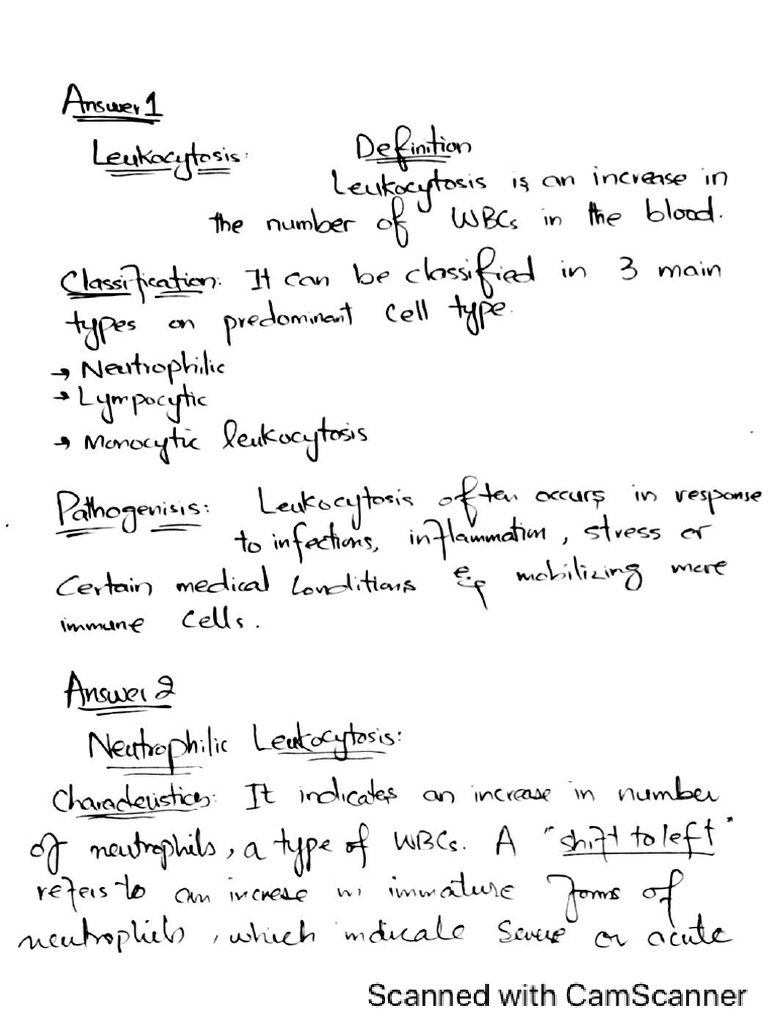 Answer 1
Leukocytosis: Definition
Leukocytosis is an increase in
the number of WBCs in the blood.
Classification: It can be classified in 3 main
types on predominant cell type.
→ Neutrophilic
→ Lympocytic
→ Monocytic leukocytosis
Pathogenisis: Leukocytosis often occurs in response
to infections, inflammation, stress or
Certain medical conditions & mobilizing more
immune cells.
Answer 2
Neutrophilic Leukocytosis:
Characteristics: It indicates an increase in number
of neutrophils, a type of WBCs. A "shift to left"
refers to an increse in immature forms of
neutrophils, which indicate severe or acute
Scanned with CamScanner